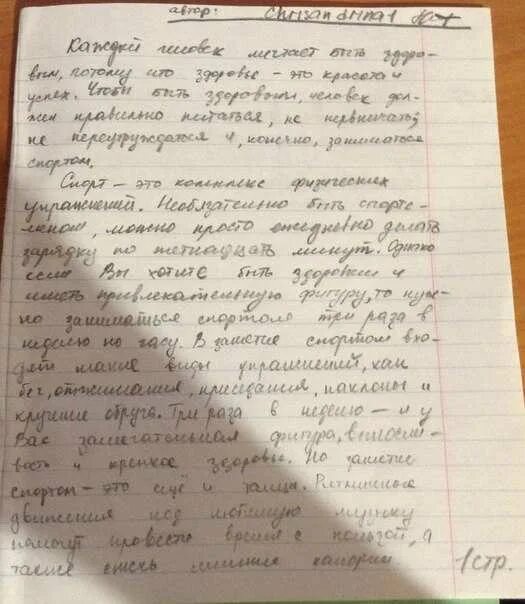 автор: Chrisandrina1
Каждый человек мечтает быть здоро-
вым, потому что здоровье – это красота и
успех. Чтобы быть здоровым, человек дол-
жен правильно питаться, не нервничать,
не переутруждаться и, конечно, заниматься
спортом.
Спорт – это комплекс физических
упражнений. Необязательно быть спортс-
меном, можно просто ежедневно делать
зарядку по пятнадцать минут. Однако
если Вы хотите быть здоровым и
иметь привлекательную фигуру, то нуж-
но заниматься спортом три раза в
неделю по часу. В занятие спортом вхо-
дят такие виды упражнений, как
бег, отжимания, приседания, наклоны и
кручение обруча. Три раза в неделю – и у
Вас замечательная фигура, выносли-
вость и крепкое здоровье. Но занятие
спортом – это ещё и танцы. Ритмичные
движения под любимую музыку
помогут провести время с пользой, а
также сжечь лишние калории
1 стр.